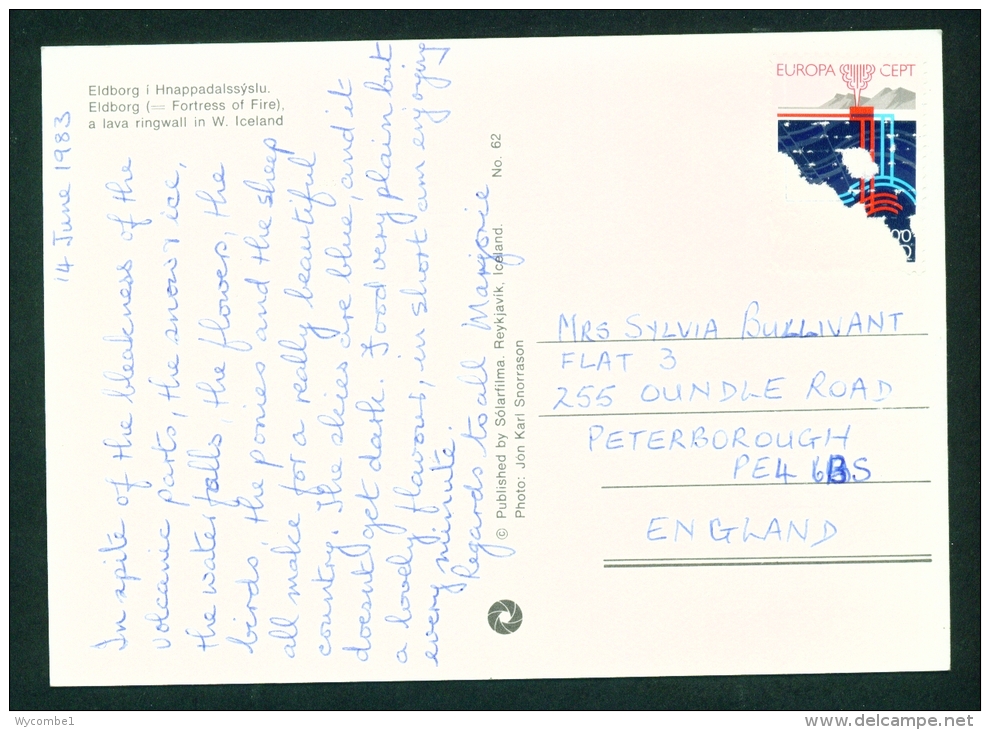 Eldborg i Hnappadalssýslu.
Eldborg (= Fortress of Fire),
a lava ringwall in W. Iceland
14 June 1983
In spite of the bleakness of the
volcanic parts, the snow & ice,
the waterfalls, the flowers, the
birds, the ponies and the sheep
all make for a really beautiful
country. The skies are blue, and it
doesn't get dark. Food very plain but
a lovely flavour, in short am enjoying
every minute.
Regards to all Marjorie
© Published by Sólarfilma. Reykjavik, Iceland. No. 62
Photo: Jón Karl Snorrason
EUROPA CEPT
00
MRS SYLVIA BULLIVANT
FLAT 3
255 OUNDLE ROAD
PETERBOROUGH
PE4 6BS
ENGLAND
Wycombe1
www.delcampe.net